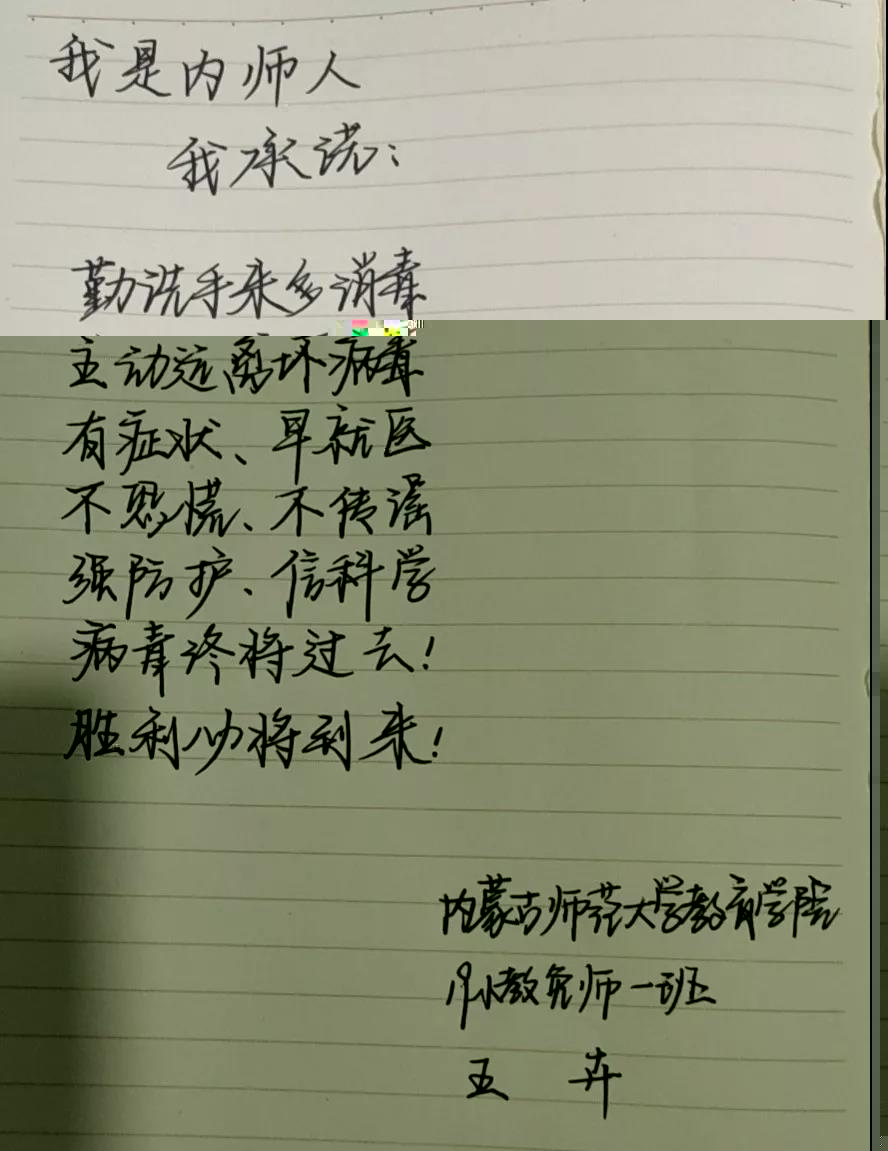 我是内师人
我承诺：
勤洗手来多消毒
主动远离坏病毒
有症状、早就医
不恐慌、不传谣
强防护、信科学
病毒终将过去！
胜利必将到来！
内蒙古师范大学教育学院
19小教免师一班
王卉